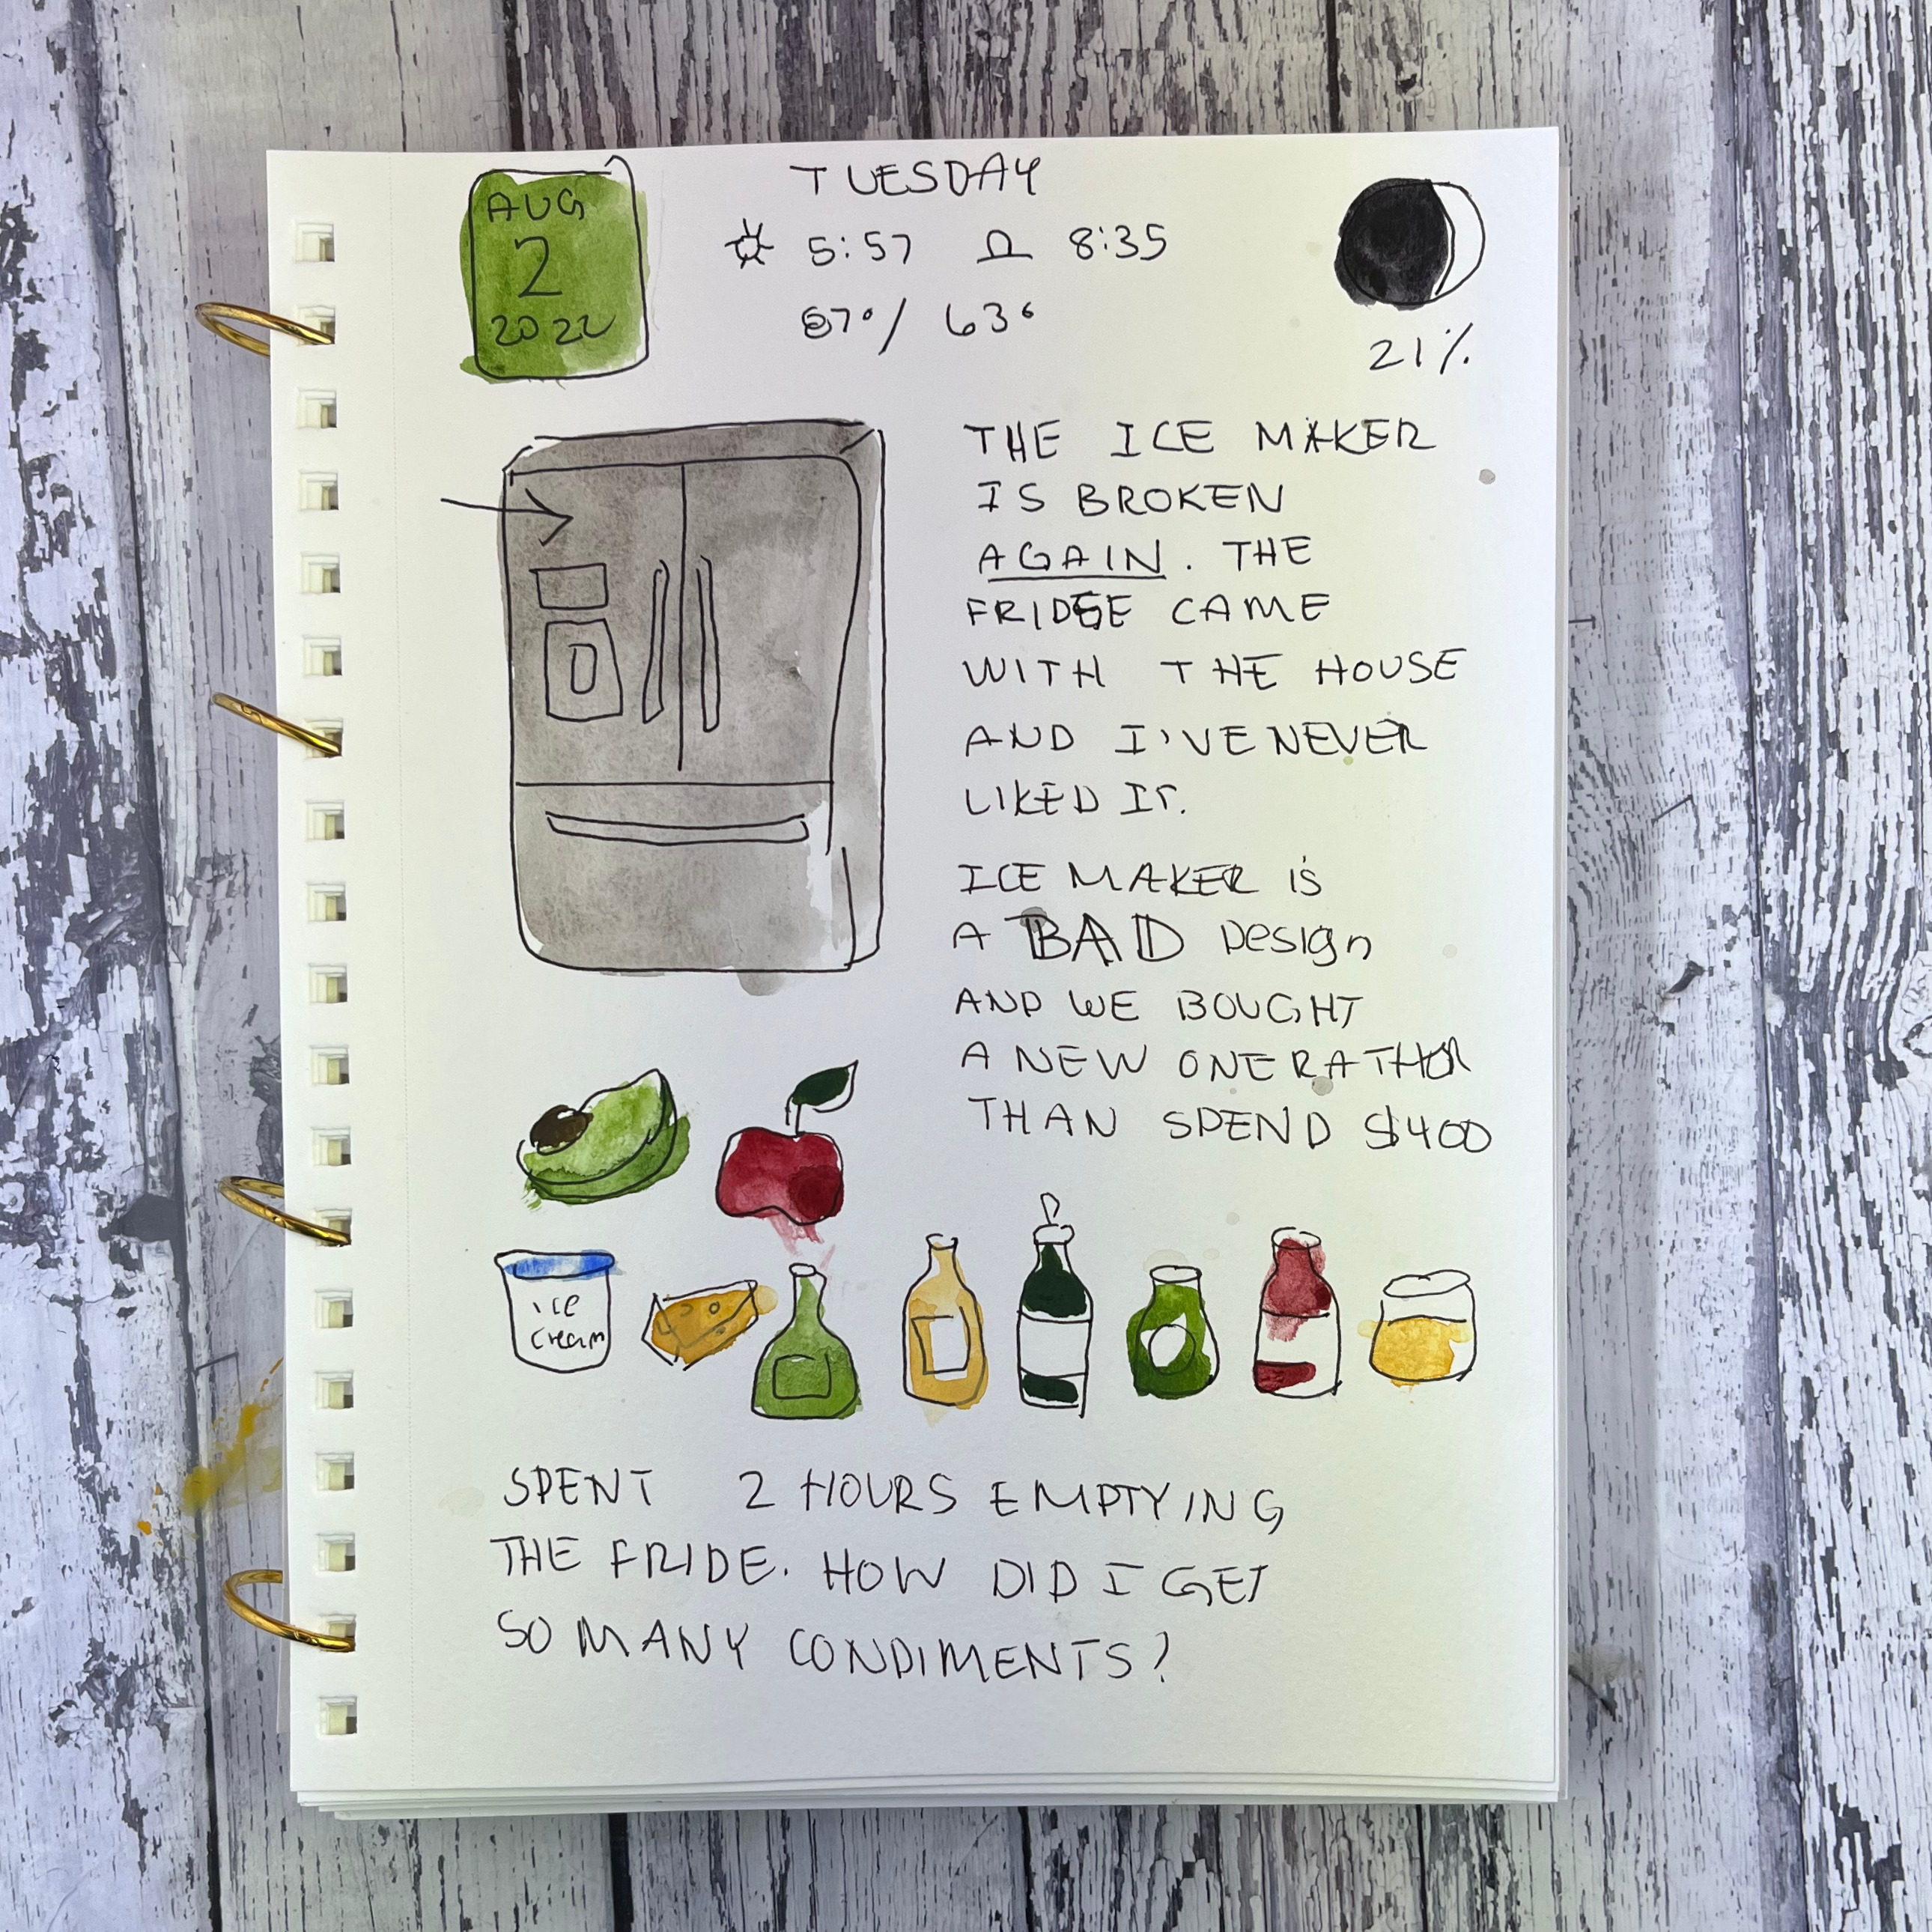 AUG
2
2022
TUESDAY
5:57 8:35
87°/ 63°
21%
THE ICE MAKER
IS BROKEN
AGAIN. THE
FRIDGE CAME
WITH THE HOUSE
AND I'VE NEVER
LIKED IT.
ICE MAKER is
A BAD Design
AND WE BOUGHT
A NEW ONE RATHER
THAN SPEND $400
ice
cream
SPENT 2 HOURS EMPTYING
THE FRIDE. HOW DID I GET
SO MANY CONDIMENTS?